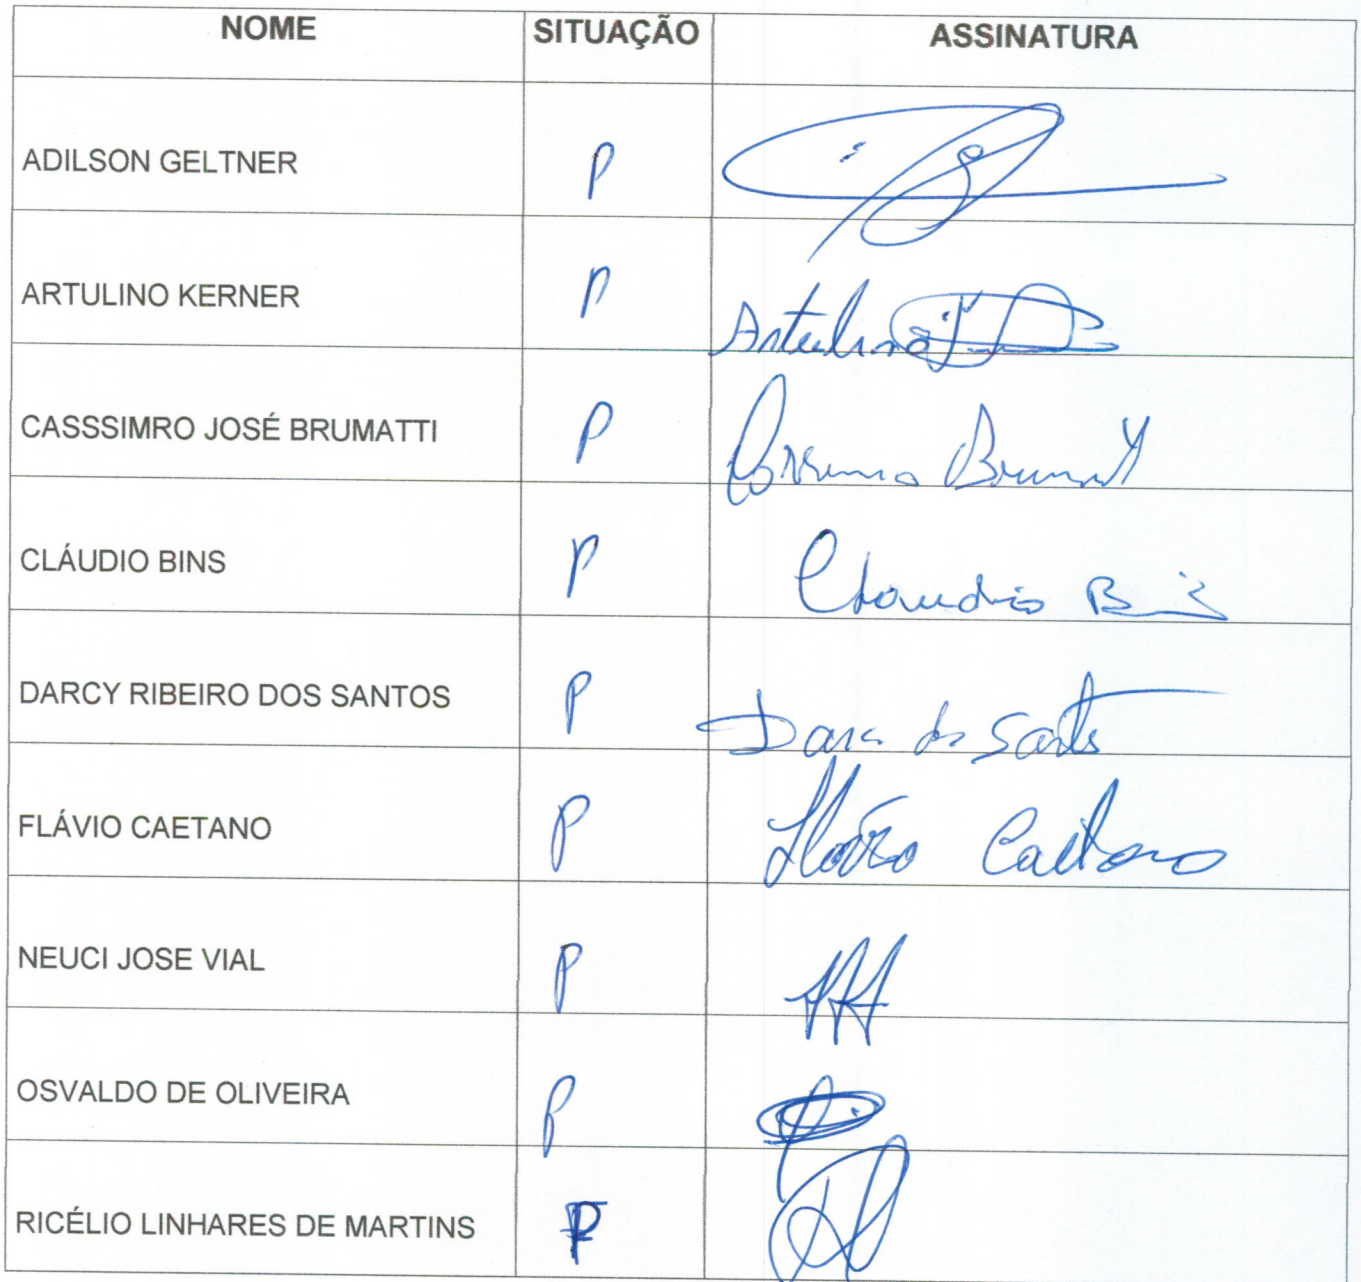 NOME SITUAÇÃO ASSINATURA
ADILSON GELTNER P
ARTULINO KERNER P Artulino
CASSSIMRO JOSÉ BRUMATTI P
CLÁUDIO BINS P Claudio Bins
DARCY RIBEIRO DOS SANTOS P
FLÁVIO CAETANO P Flavio Caetano
NEUCI JOSE VIAL P
OSVALDO DE OLIVEIRA P
RICÉLIO LINHARES DE MARTINS P